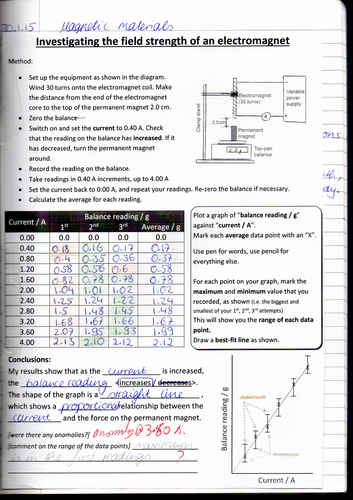 30.1.15 Magnetic materials
Investigating the field strength of an electromagnet
Method:
• Set up the equipment as shown in the diagram.
Wind 30 turns onto the electromagnet coil. Make
the distance from the end of the electromagnet
core to the top of the permanent magnet 2.0 cm.
• Zero the balance
• Switch on and set the current to 0.40 A. Check
that the reading on the balance has increased. If it
has decreased, turn the permanent magnet
around.
• Record the reading on the balance.
• Take readings in 0.40 A increments, up to 4.00 A
• Set the current back to 0.00 A, and repeat your readings. Re-zero the balance if necessary.
• Calculate the average for each reading.
Clamp stand
Electromagnet
(30 turns)
Variable
power
supply
A
2.0 cm
Permanent
magnet
Top-pan
balance
Current / A
Balance reading / g
1st 2nd 3rd Average / g
0.00 0.0 0.0 0.0 0.0
0.40 0.18 0.16 0.17 0.17
0.80 0.4 0.35 0.36 0.37
1.20 0.58 0.56 0.6 0.58
1.60 0.82 0.78 0.78 0.78
2.00 1.04 1.01 1.02 1.02
2.40 1.25 1.24 1.22 1.24
2.80 1.5 1.48 1.45 1.48
3.20 1.68 1.67 1.66 1.67
3.60 2.07 1.95 1.93 1.99
4.00 2.13 2.10 2.12 2.12
Plot a graph of "balance reading / g"
against "current / A".
Mark each average data point with an "X".
Use pen for words, use pencil for
everything else.
For each point on your graph, mark the
maximum and minimum value that you
recorded, as shown (i.e. the biggest and
smallest of your 1st, 2nd, 3rd attempts)
This will show you the range of each data
point.
Draw a best-fit line as shown.
Conclusions:
My results show that as the current is increased,
the balance reading <increases/ decreases>.
The shape of the graph is a straight line,
which shows a proportional relationship between the
current and the force on the permanent magnet.
[were there any anomalies?] Anomaly @ 3.60 A.
[comment on the range of the data points] maximum
is in the first readings ?
Balance reading / g
Current / A